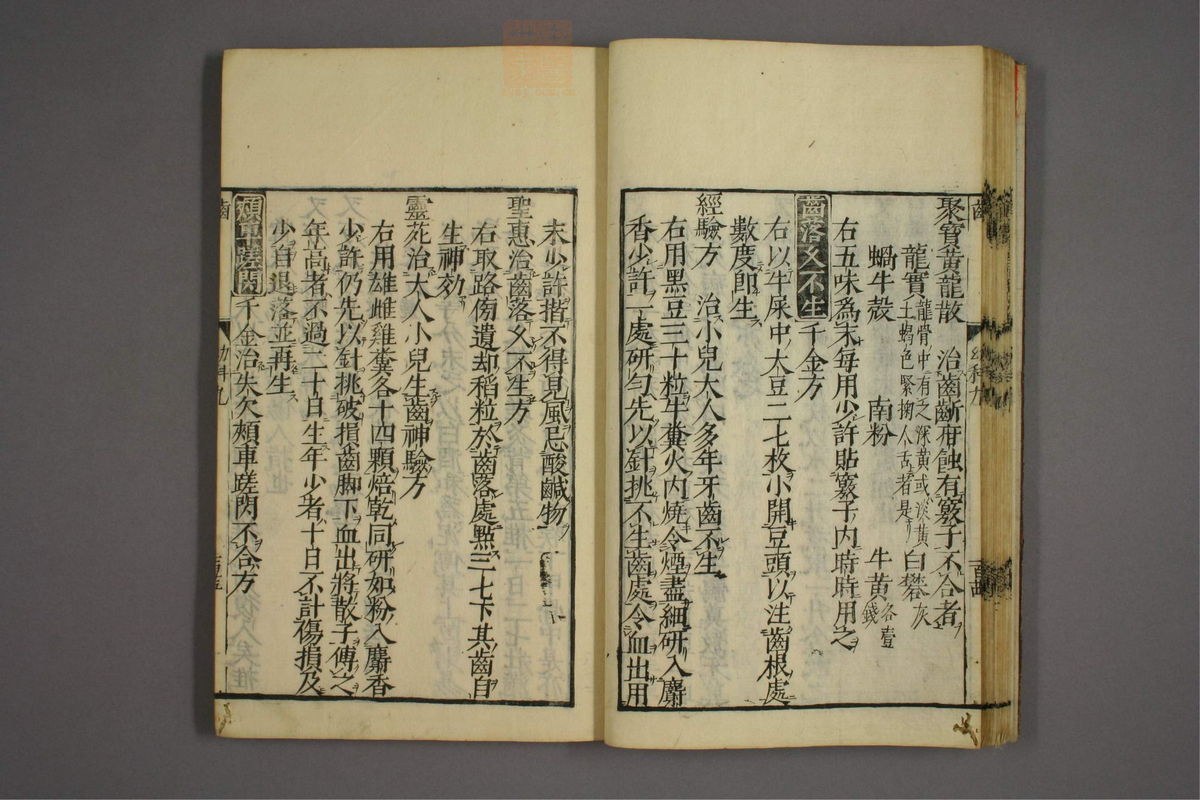 聚寶黃龍散　治齒齗疳蝕有竅子不合者
龍實龍骨中有之深黃或淡黃土蝎色緊搊人舌者是白礬灰
蝸牛殼　南粉　牛黃各壹錢
右五味為末每用少許貼竅子內時時用之
齒落久不生千金方
右以牛屎中大豆二七枚小開豆頭以注齒根處
數度即生
經驗方　治小兒大人多年牙齒不生
右用黑豆三十粒牛糞火內燒令煙盡細研入麝
香少許一處研勻先以針挑不生齒處令血出用
末少許揩不得見風忌酸鹹物
聖惠治齒落久不生方
右取路傍遺却稻粒於齒落處點三七下其齒自
生神効
靈苑治大人小兒生齒神驗方
右用雄雌雞糞各十四顆焙乾同研如粉入麝香
少許仍先以針挑破損齒脚下血出將散子傅之
年高者不過二十日生年少者十日不計傷損及
少自退落並再生
頰車蹉閃千金治失欠頰車蹉閃不合方